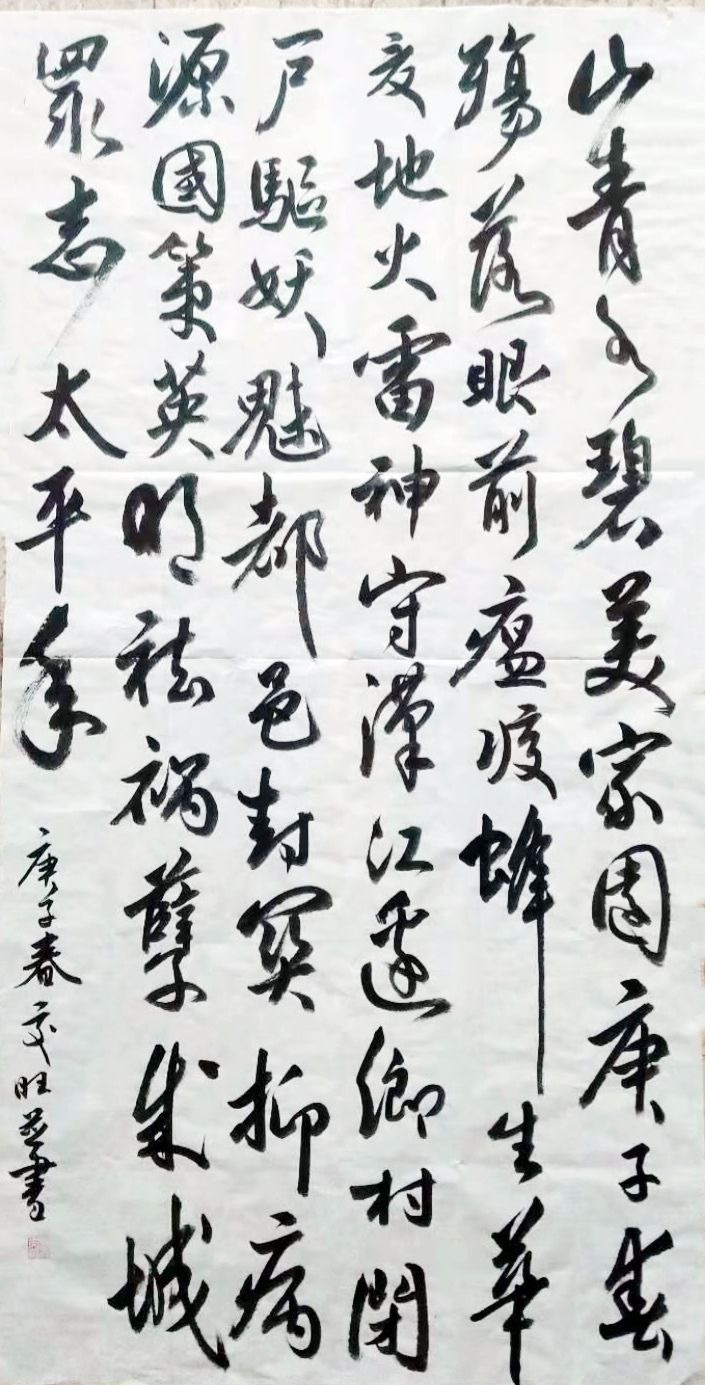 山青水碧美家园庚子春
殇落眼前瘟疫蜂生华
夏地火雷神守漢江邊鄉村閉
户驅妖魅都邑封関抑病
源國策英明祛禍孽众城
眾志太平年
庚子春 旺並書